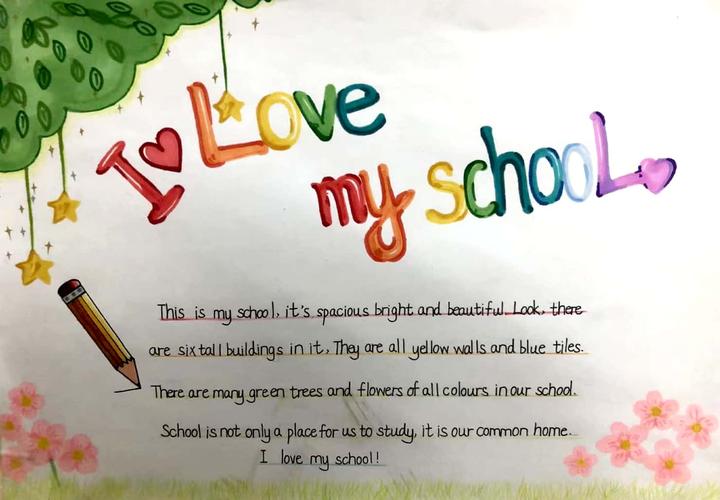 I Love
my school
This is my school, it's spacious bright and beautiful. Look, there
are six tall buildings in it, They are all yellow walls and blue tiles.
There are many green trees and flowers of all colours in our school.
School is not only a place for us to study, it is our common home.
I love my school!